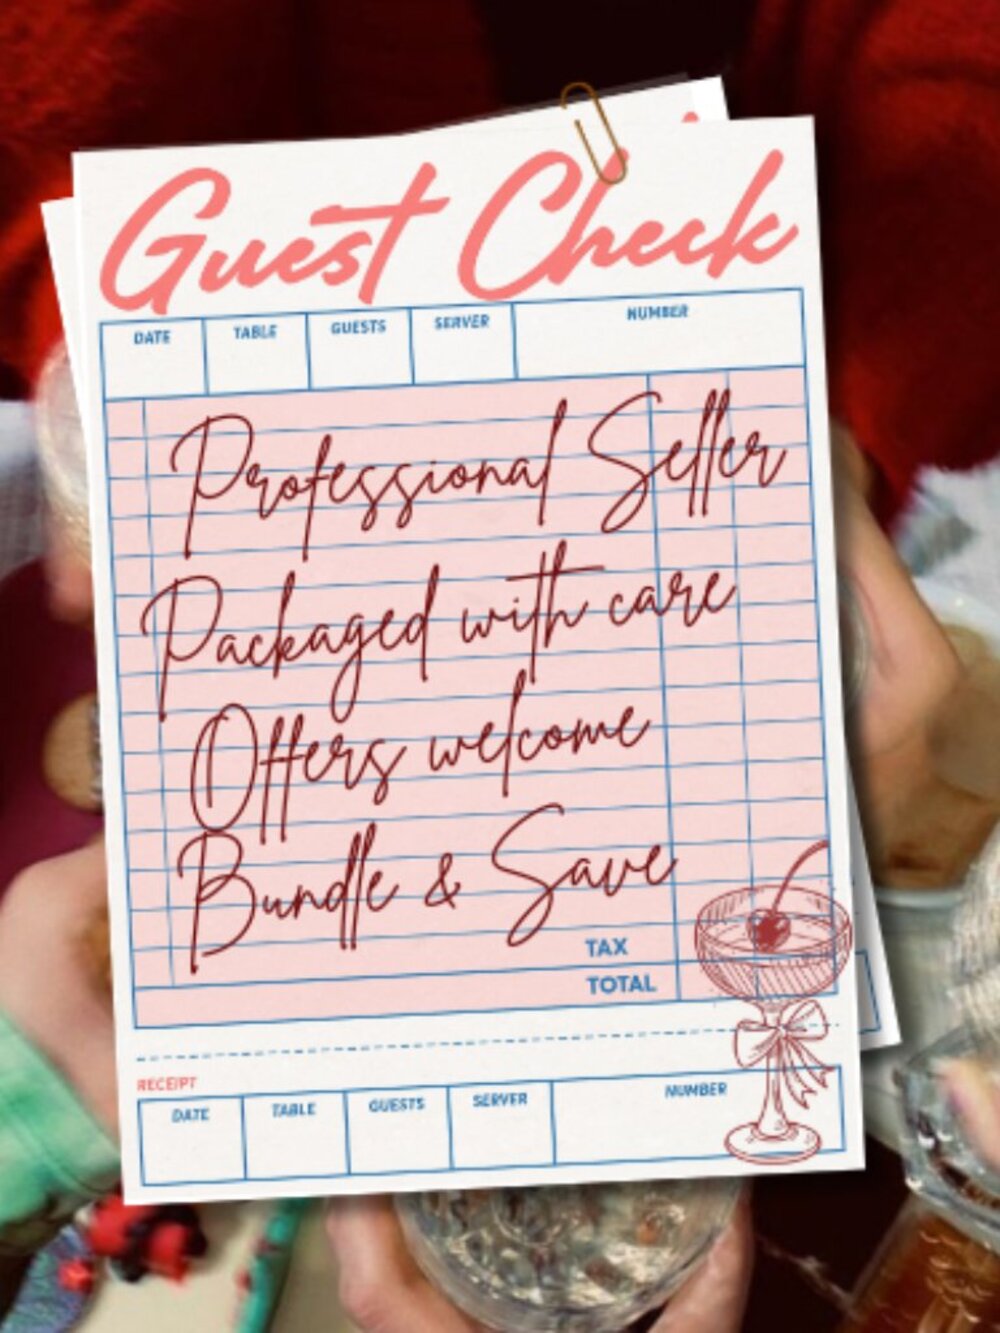 Guest Check
DATE TABLE GUESTS SERVER NUMBER
Professional Seller
Packaged with care
Offers welcome
Bundle & Save
TAX
TOTAL
RECEIPT
DATE TABLE GUESTS SERVER NUMBER